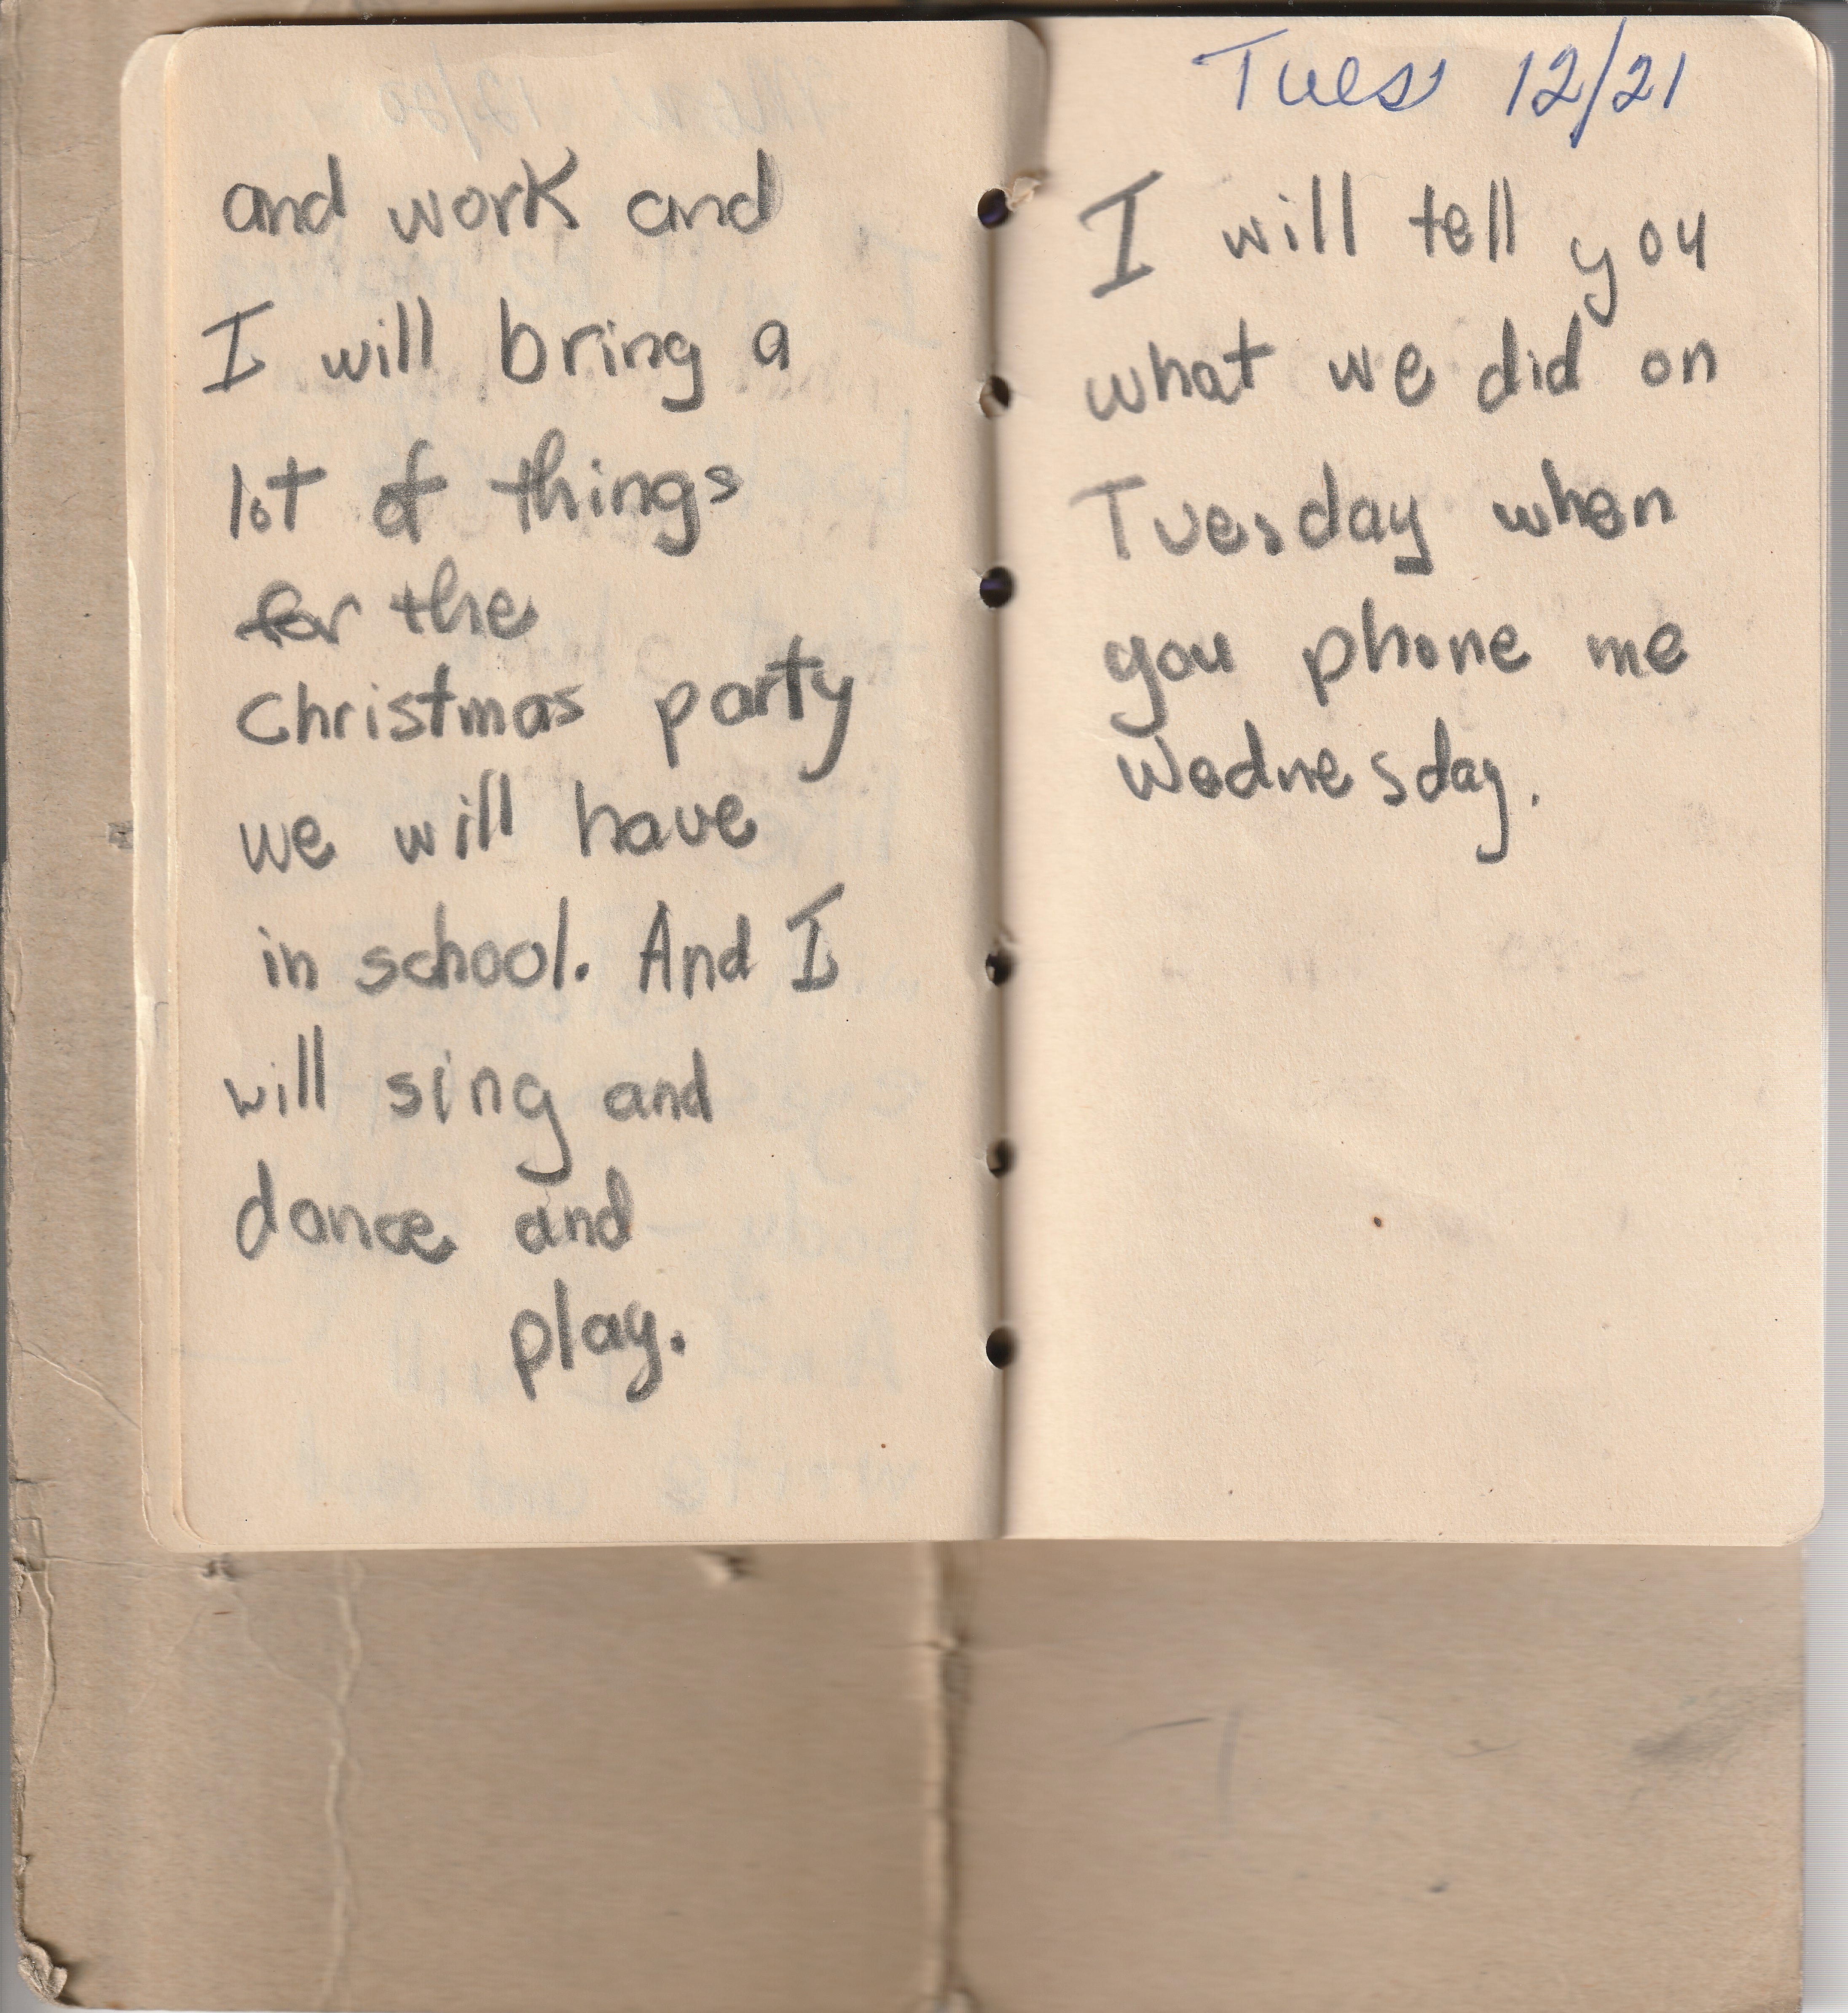 and work and
I will bring a
lot of things
for the
Christmas party
we will have
in school. And I
will sing and
dance and
play.
Tues 12/21
I will tell you
what we did on
Tuesday when
you phone me
Wednesday.